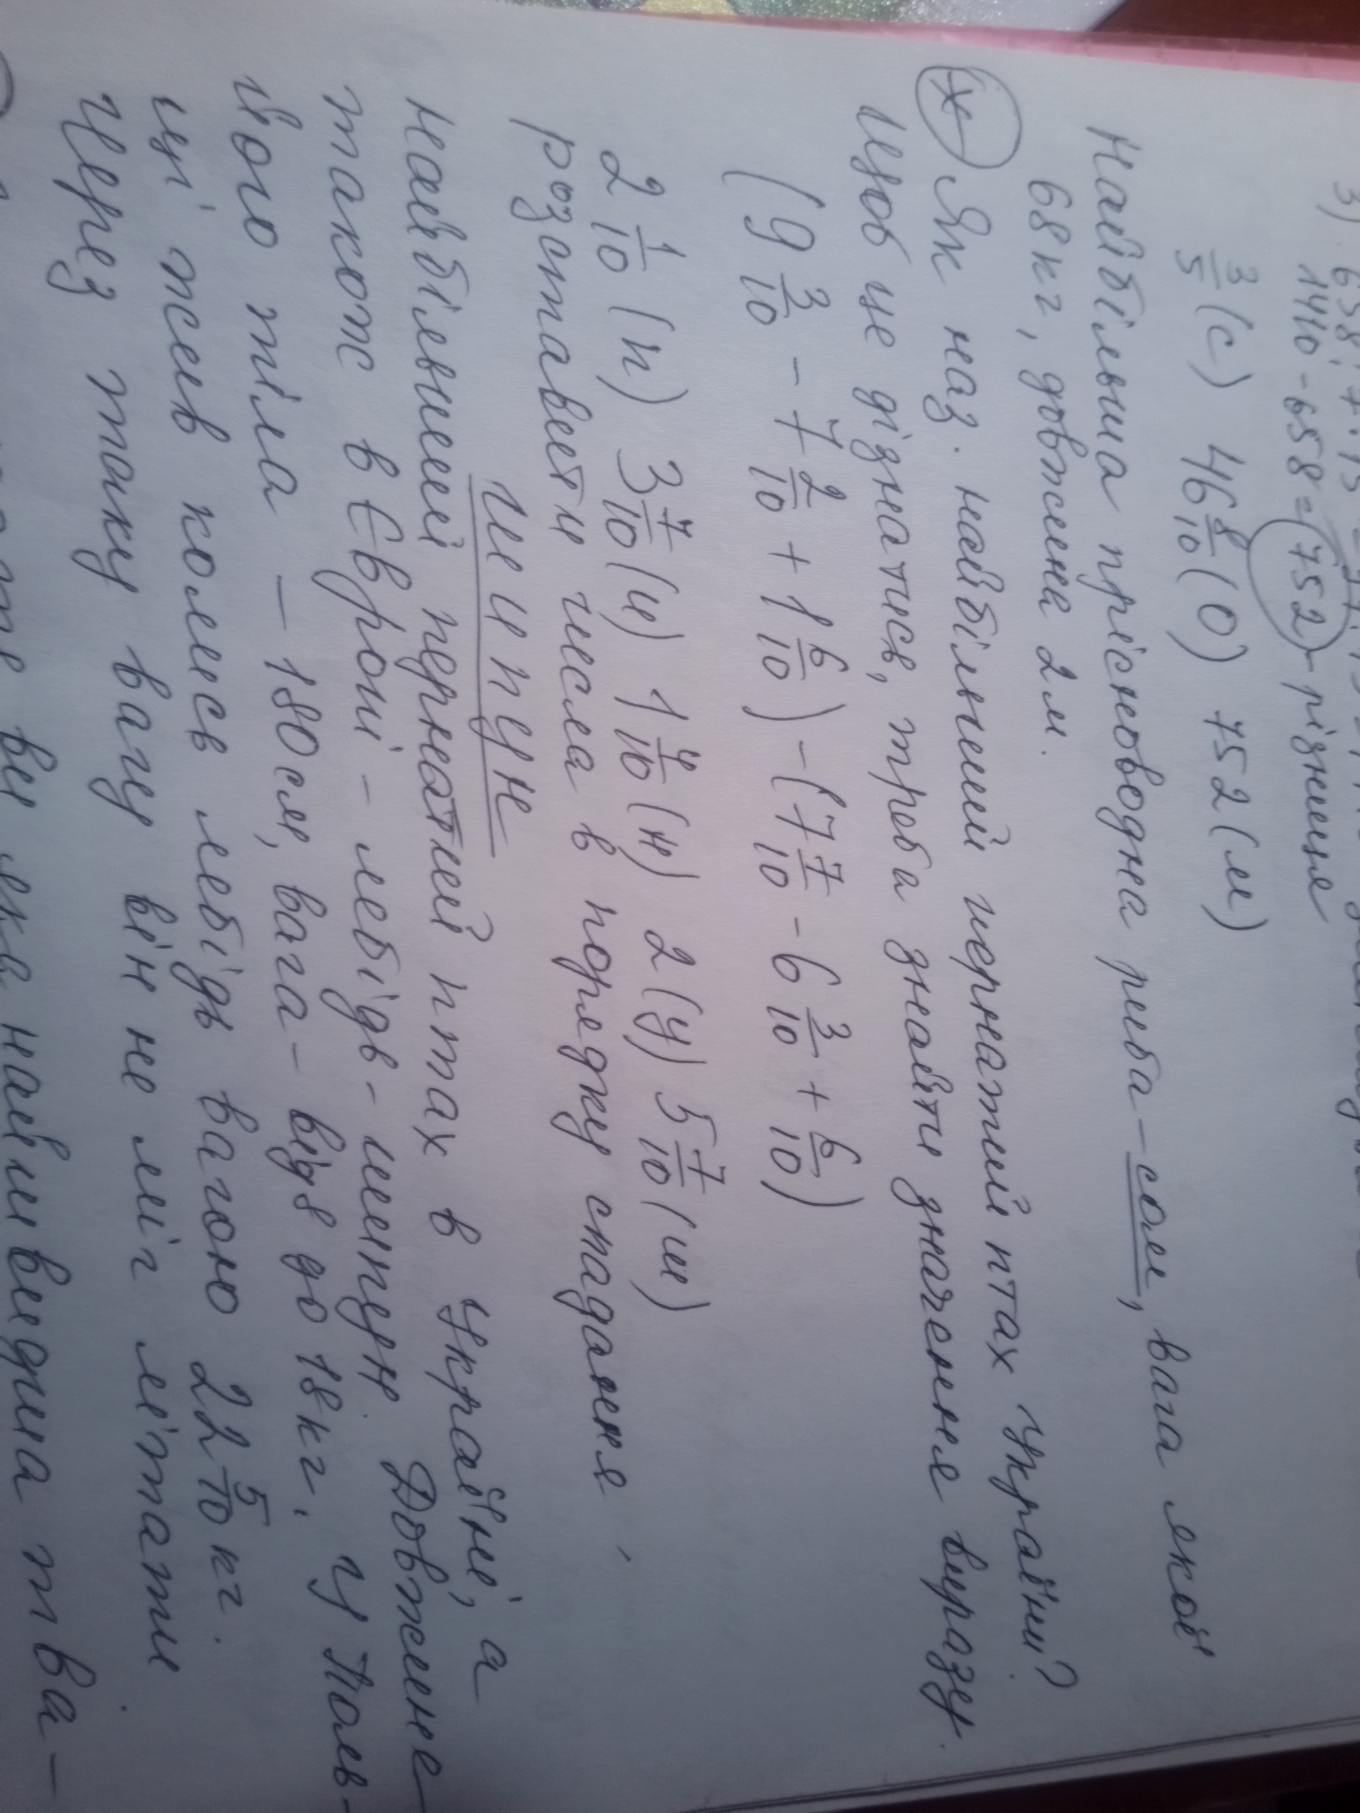 3) 658:7·15
1410-658=(752)-різниця
3/5 (с) 46 8/10 (о) 752 (м)
Найбільша прісноводна риба - сом, вага якої
68 кг, довжина 2 м.
* Як наз. найбільший пернатий птах України?
Щоб це дізнатись, треба знайти значення виразу.
(9 3/10 - 7 2/10 + 1 6/10) - (7 7/10 - 6 3/10 + 6/10)
2 1/10 (п) 3 7/10 (и) 1 4/10 (н) 2 (у) 5 7/10 (ш)
розставити числа в порядку спадання
шипун
Найбільший пернатий птах в Україні, а
також в Європі - лебідь-шипун. Довжина
його тіла - 180 см, вага - від 8 до 18 кг. У Поль-
щі жив колись лебідь вагою 22 5/10 кг.
Через таку вагу він не міг літати
ви яка найшвидша тва-